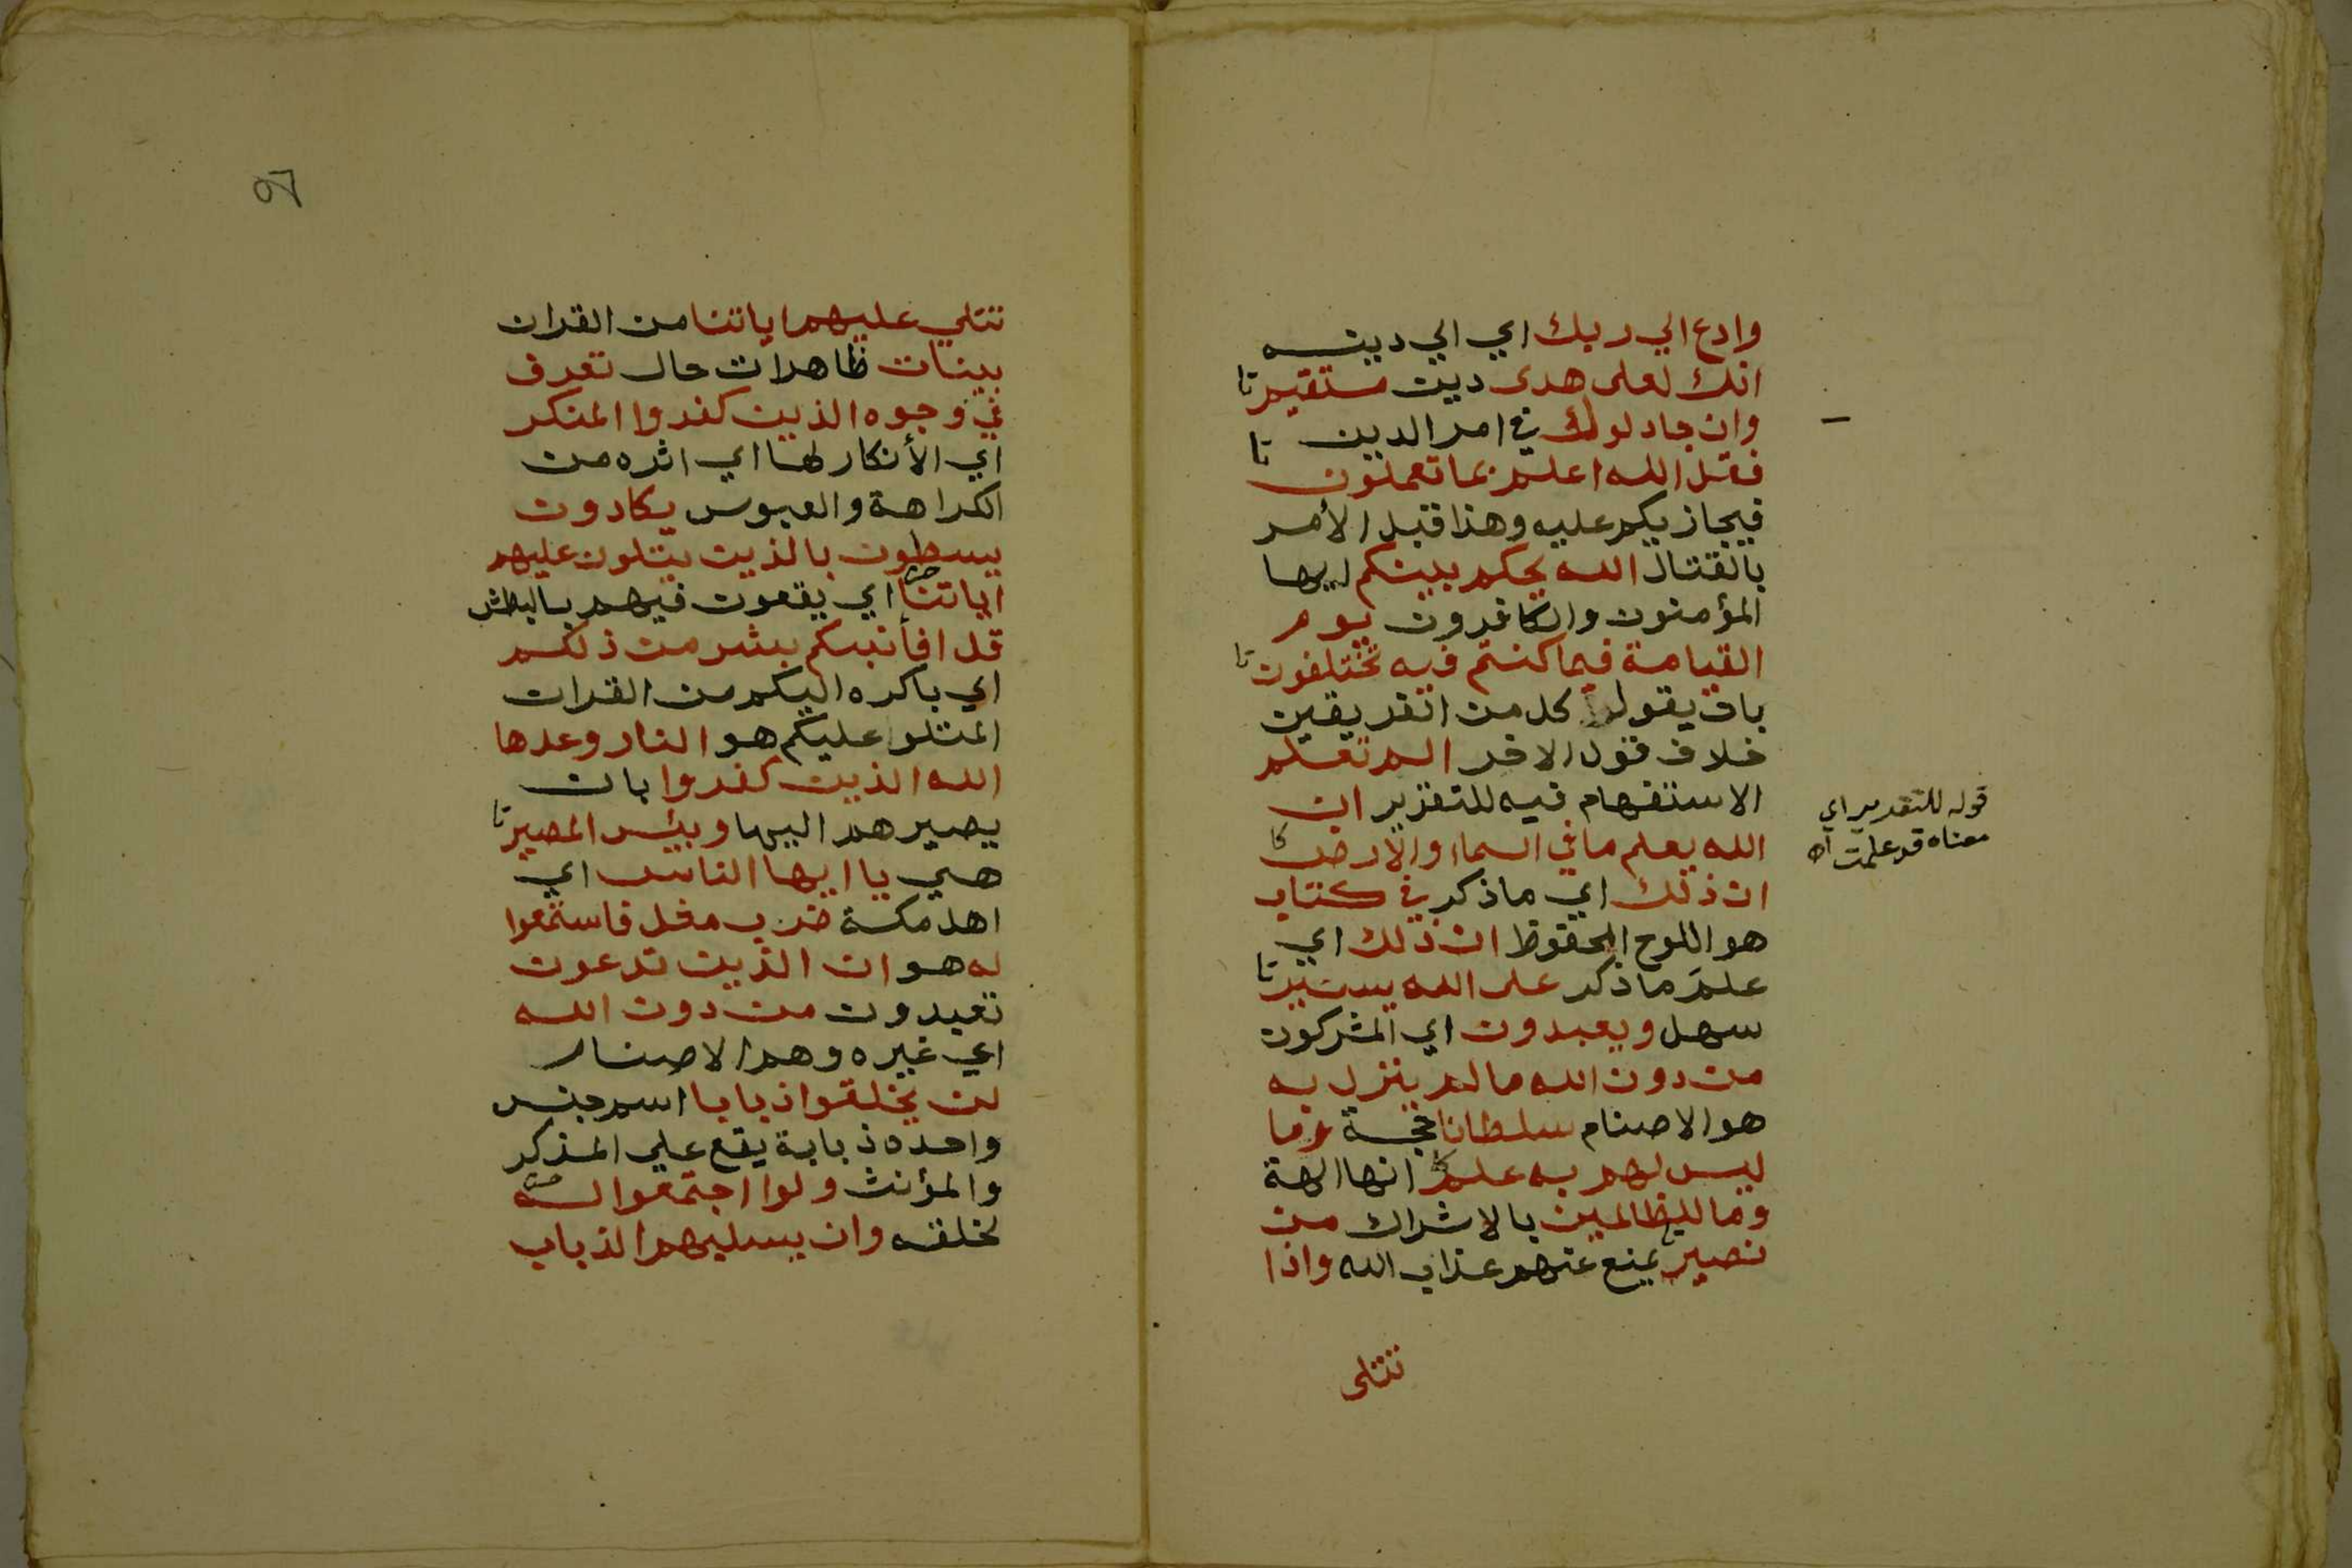 وادع الي ربك اي الي دينه
انك لعلى هدى دين مستقيم تا
وان جادلوك في امر الدين
فقل الله اعلم بما تعملون تا
فيجازيكم عليه وهذا قبل الأمر
بالقتال الله يحكم بينكم ايها
المؤمنون والكافرون يوم
القيامة فيما كنتم فيه تختلفون تا
بان يقول كل من الفريقين
خلاف قول الاخر الم تعلم
الاستفهام فيه للتقرير ان
الله يعلم ما في السماء والأرض كا
ان ذلك اي ما ذكر في كتاب
هو اللوح المحفوظ ان ذلك اي
علم ما ذكر على الله يسير تا
سهل ويعبدون اي المشركون
من دون الله ما لم ينزل به
هو الاصنام سلطانا حجة وما
ليس لهم به علم كا انها الهة
وما للظالمين بالاشراك من
نصير يمنع عنهم عذاب الله واذا
تتلى
قوله للتقرير اي
معناه قد علمت اه
٥٦
تتلي عليهم اياتنا من القران
بينات ظاهرات حال تعرف
في وجوه الذين كفروا المنكر
اي الأنكار لها اي اثره من
الكراهة والعبوس يكادون
يسطون بالذين يتلون عليهم
اياتنا اي يقعون فيهم بالبطش
قل افأنبئكم بشر من ذلكم
اي باكره اليكم من القران
المتلو عليكم هو النار وعدها
الله الذين كفروا بان
يصيرهم اليها وبئس المصير تا
هي يا ايها الناس اي
اهل مكة ضرب مثل فاستمعوا
له هو ان الذين تدعون
تعبدون من دون الله
اي غيره وهم الاصنام
لن يخلقوا ذبابا اسم جنس
واحده ذبابة يقع علي المذكر
والمؤنث ولو اجتمعوا له
لخلقه وان يسلبهم الذباب